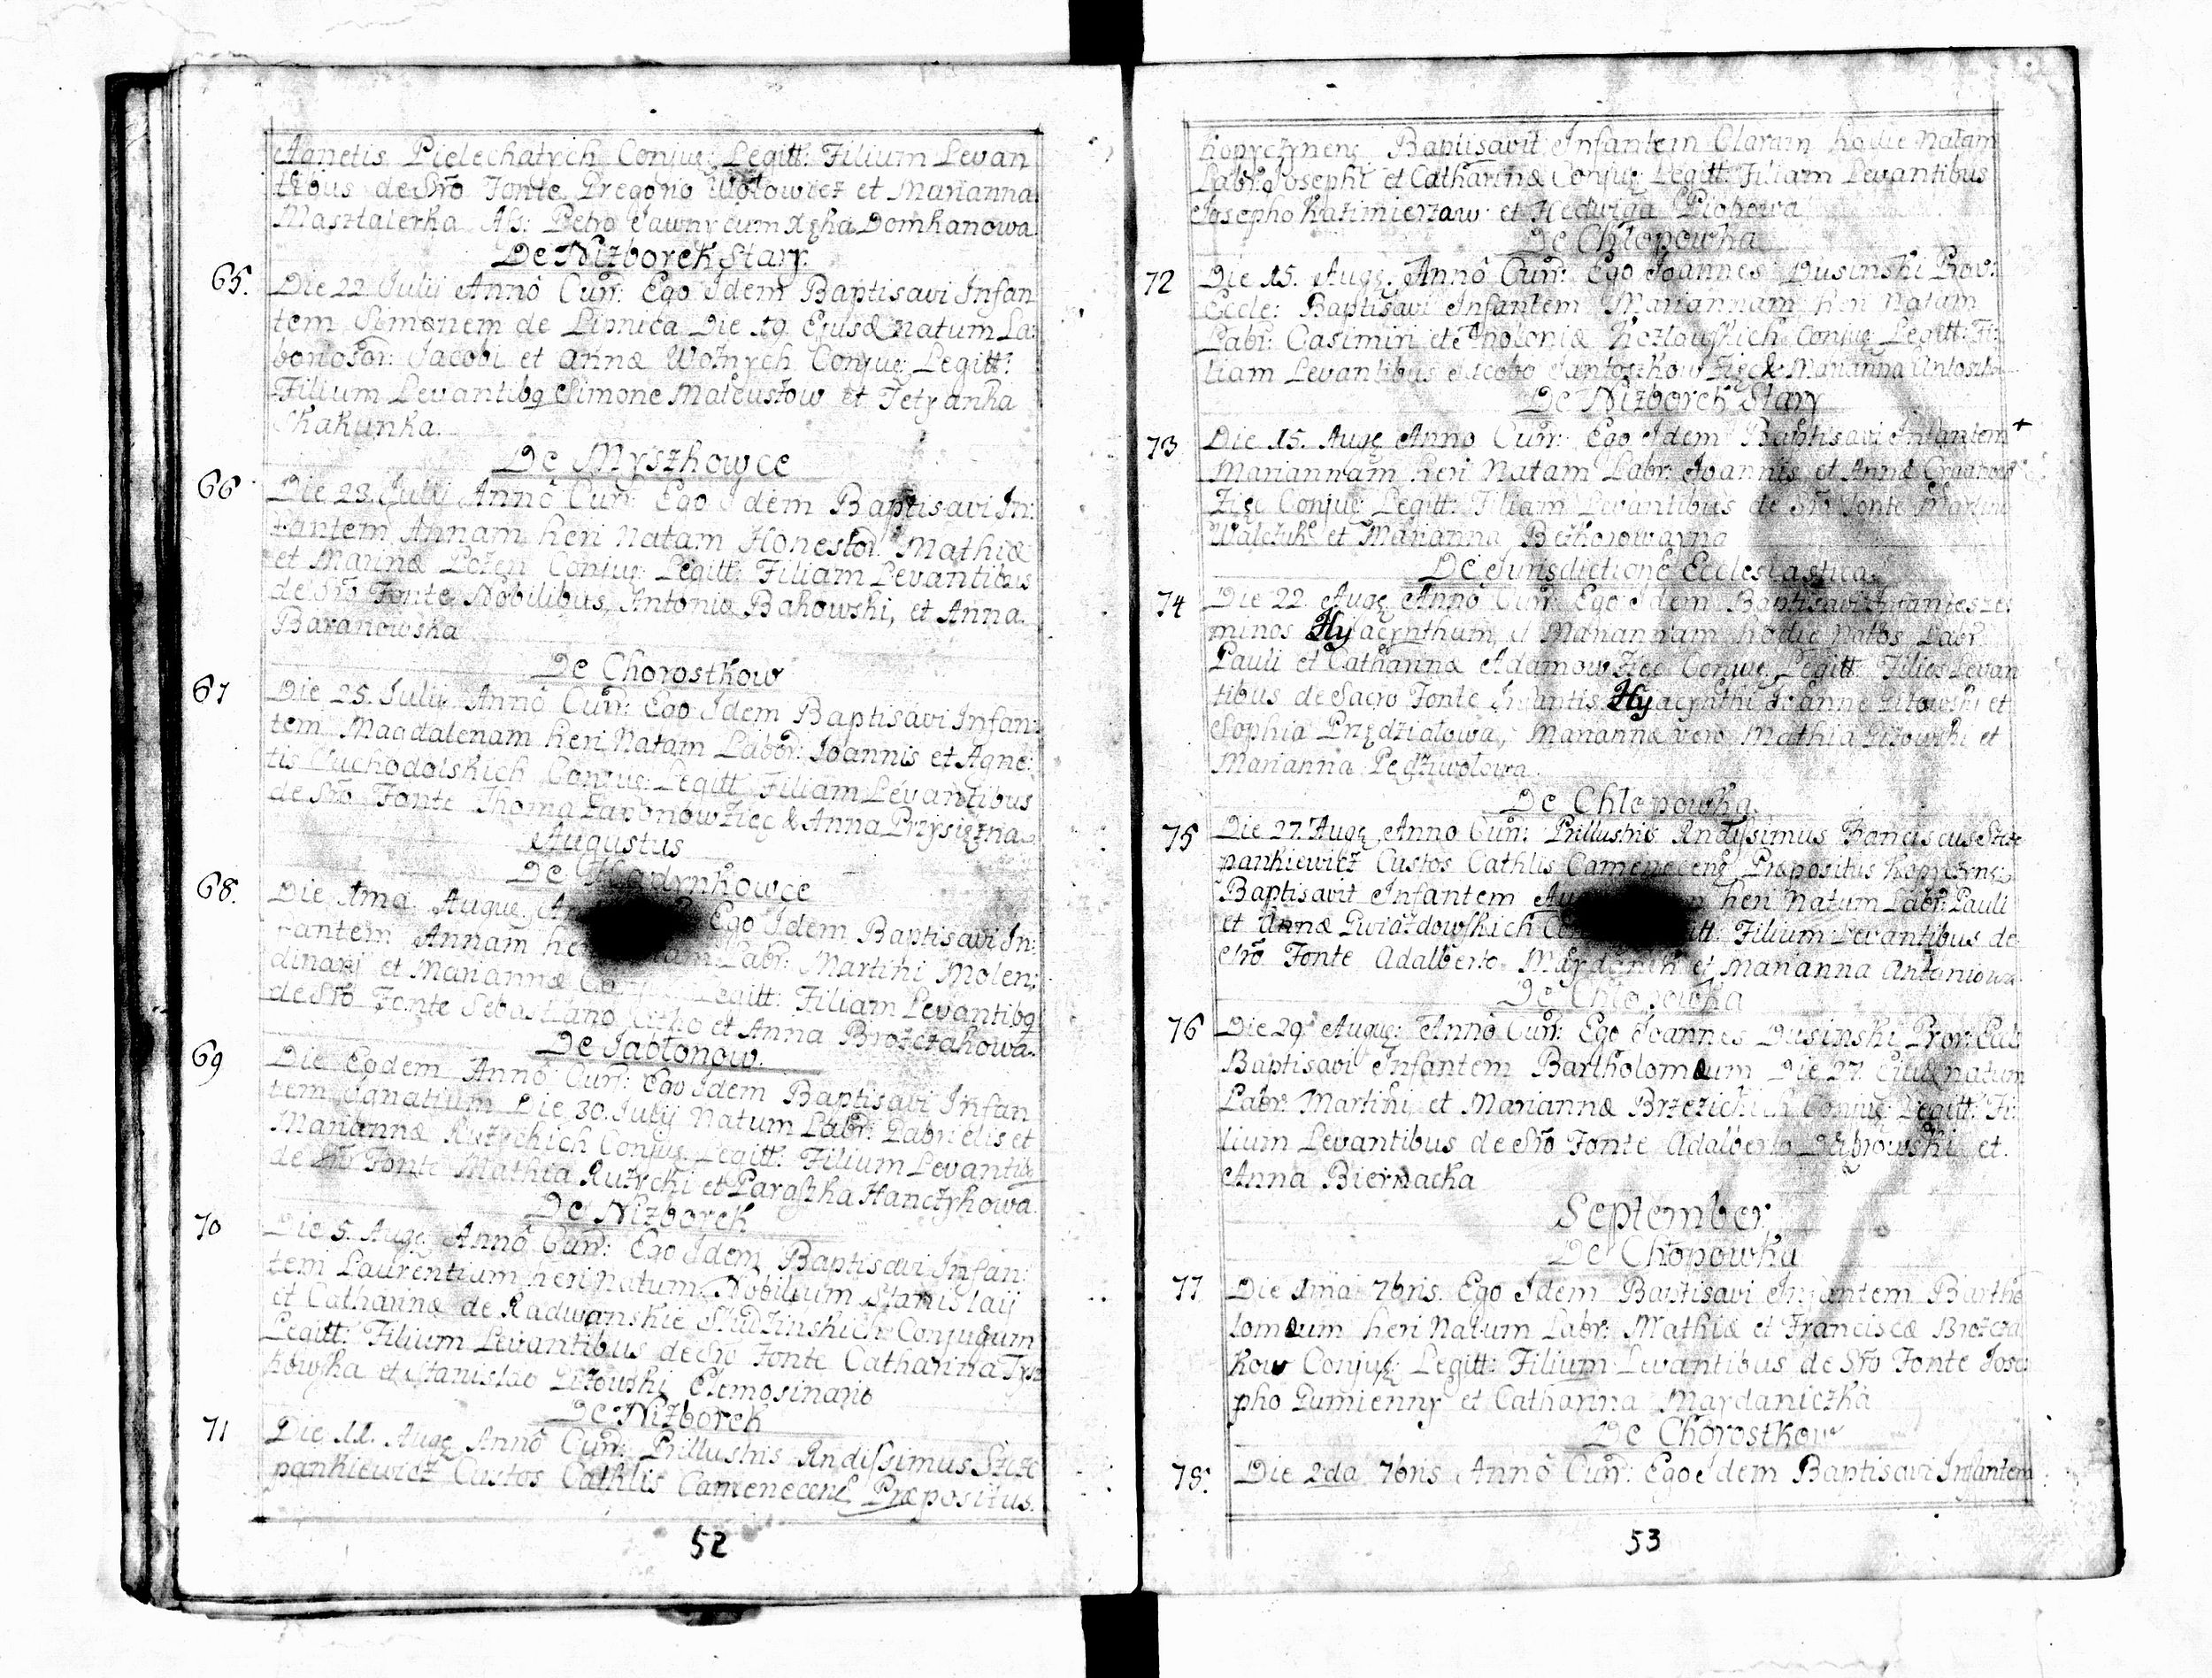 Agnetis Pielechatych Conjug: Legitt: Filium Levan
tibus de Sro Fonte Gregorio Wołowicz et Marianna
Masztalerka Ass: Petro Sawny cum Domkanowa
De Nizborek Stary.
65. Die 22 Julii Anno Curr: Ego Idem Baptisavi Infan
tem Simonem de Lipnica Die 19 Ejusd natum La:
bonosor: Jacobi et Annæ Woznych Conjug: Legitt:
Filium Levantibq Simone Mateuszow et Tetyanka
Skakunka.
De Myszkowce
66 Die 23. Julii Anno Curr: Ego Idem Baptisavi In:
fantem Annam heri Natam Honestor: Mathiæ
et Marinæ Conjug: Legitt: Filiam Levantibus
de Sro Fonte Nobilibus, Antonio Bakowski, et Anna
Baranowska
De Chorostkow
67 Die 25. Julii Anno Curr: Ego Idem Baptisavi Infan:
tem Magdalenam heri Natam Labor: Joannis et Agne:
tis Suchodolskich Conjug: Legitt Filiam Levantibus
de Sro Fonte Thoma & Anna Przysiężna
Augustus
De
68. Die 1ma Augus: Ego Idem Baptisavi In:
fantem Annam Labr: Martini Molen:
dinarj et Mariannæ Legitt: Filiam Levantibq
de Sro Fonte Sebastiano et Anna Brozczakowa.
De Jabłonow.
69 Die Eodem Anno Curr: Ego Idem Baptisavi Infan
tem Ignatium Die 30. Julij Natum Labr: Gabrielis et
Mariannæ Ruzyckich Conjug: Legitt: Filium Levantib
de Sro Fonte Mathia Ruzycki et Paraszka Hanczykowa.
De Nizborek
70 Die 5. Augę Anno Curr: Ego Idem Baptisavi Infan:
tem Laurentium heri Natum Nobilium Stanislaii
et Catharinæ de Radwanskie Studzinskich Conjugum
Legitt: Filium Levantibus de Sro Fonte Catharina
et Stanislao Gizowski Elemosinario
De Nizborek
71 Die 11. Augę Anno Curr: Prillustris Rndissimus Szcze
pankiewicz Custos Cathlis Cameneceng Præpositus.
52
Kopyczyneng Baptisavit Infantem Claram hodie Natam
Labr: Josephi et Catharinæ Conjug: Legitt: Filiam Levantibus
Josepho Kazimierzaw: et Hedwiga
De Chłopowka
72 Die 15. Augę. Anno Curr: Ego Joannes Dusinski Prov:
Eccle: Baptisavi Infantem Mariannam heri Natam
Labr: Casimiri et Apoloniæ Kozlowskich Conjug Legitt: Fi:
liam Levantibus Jacobo & Marianna
De Nizborek Stary
73 Die 15. Augę Anno Curr: Ego Idem Baptisavi Infantem +
Mariannam heri Natam Labr: Joannis et Annæ
Conjug: Legitt: Filiam Levantibus de Sro Fonte
Walczuk et Marianna
De Jurisdictione Ecclesiastica.
74 Die 22. Augę Anno Curr: Ego Idem Baptisavi Infantes Ge
minos Hyacynthum, et Mariannam hodie Natos Labr:
Pauli et Catharinæ Conjug Legitt: Filios Levan
tibus de Sacro Fonte Infantis Hyacynthi Joanne Gizowski et
Sophia Mariannæ vero Mathia Gizowski et
Marianna
De Chlopowka.
75 Die 27. Augę Anno Curr: Prillustris Rndissimus Franciscus Szcze
pankiewicz Custos Cathlis Cameneceng Præpositus Kopyczyng:
Baptisavit Infantem heri Natum Labr: Pauli
et Annæ Gwiazdowskich Filium Levantibus de
Sro Fonte Adalberto et Marianna Antoniowa
De Chlopowka
76 Die 29 Augug: Anno Curr: Ego Joannes Dusinski Prov: Ecl:
Baptisavi Infantem Bartholomæum Die 27. Ejusd natum
Labr: Martini et Mariannæ Brzezickich Conjug: Legitt: Fi:
lium Levantibus de Sro Fonte Adalberto Dąbrowski et.
Anna Biernacka
September
De Chopowka
77 Die 1ma 7bris. Ego Idem Baptisavi Infantem Bartho
lomæum heri Natum Labr: Mathiæ et Franciscæ Brozcza
kow Conjug: Legitt: Filium Levantibus de Sro Fonte Jose
pho Gumienny et Catharina Mardaniczka
De Chorostkow
78. Die 2da 7bris Anno Curr: Ego Idem Baptisavi Infantem
53